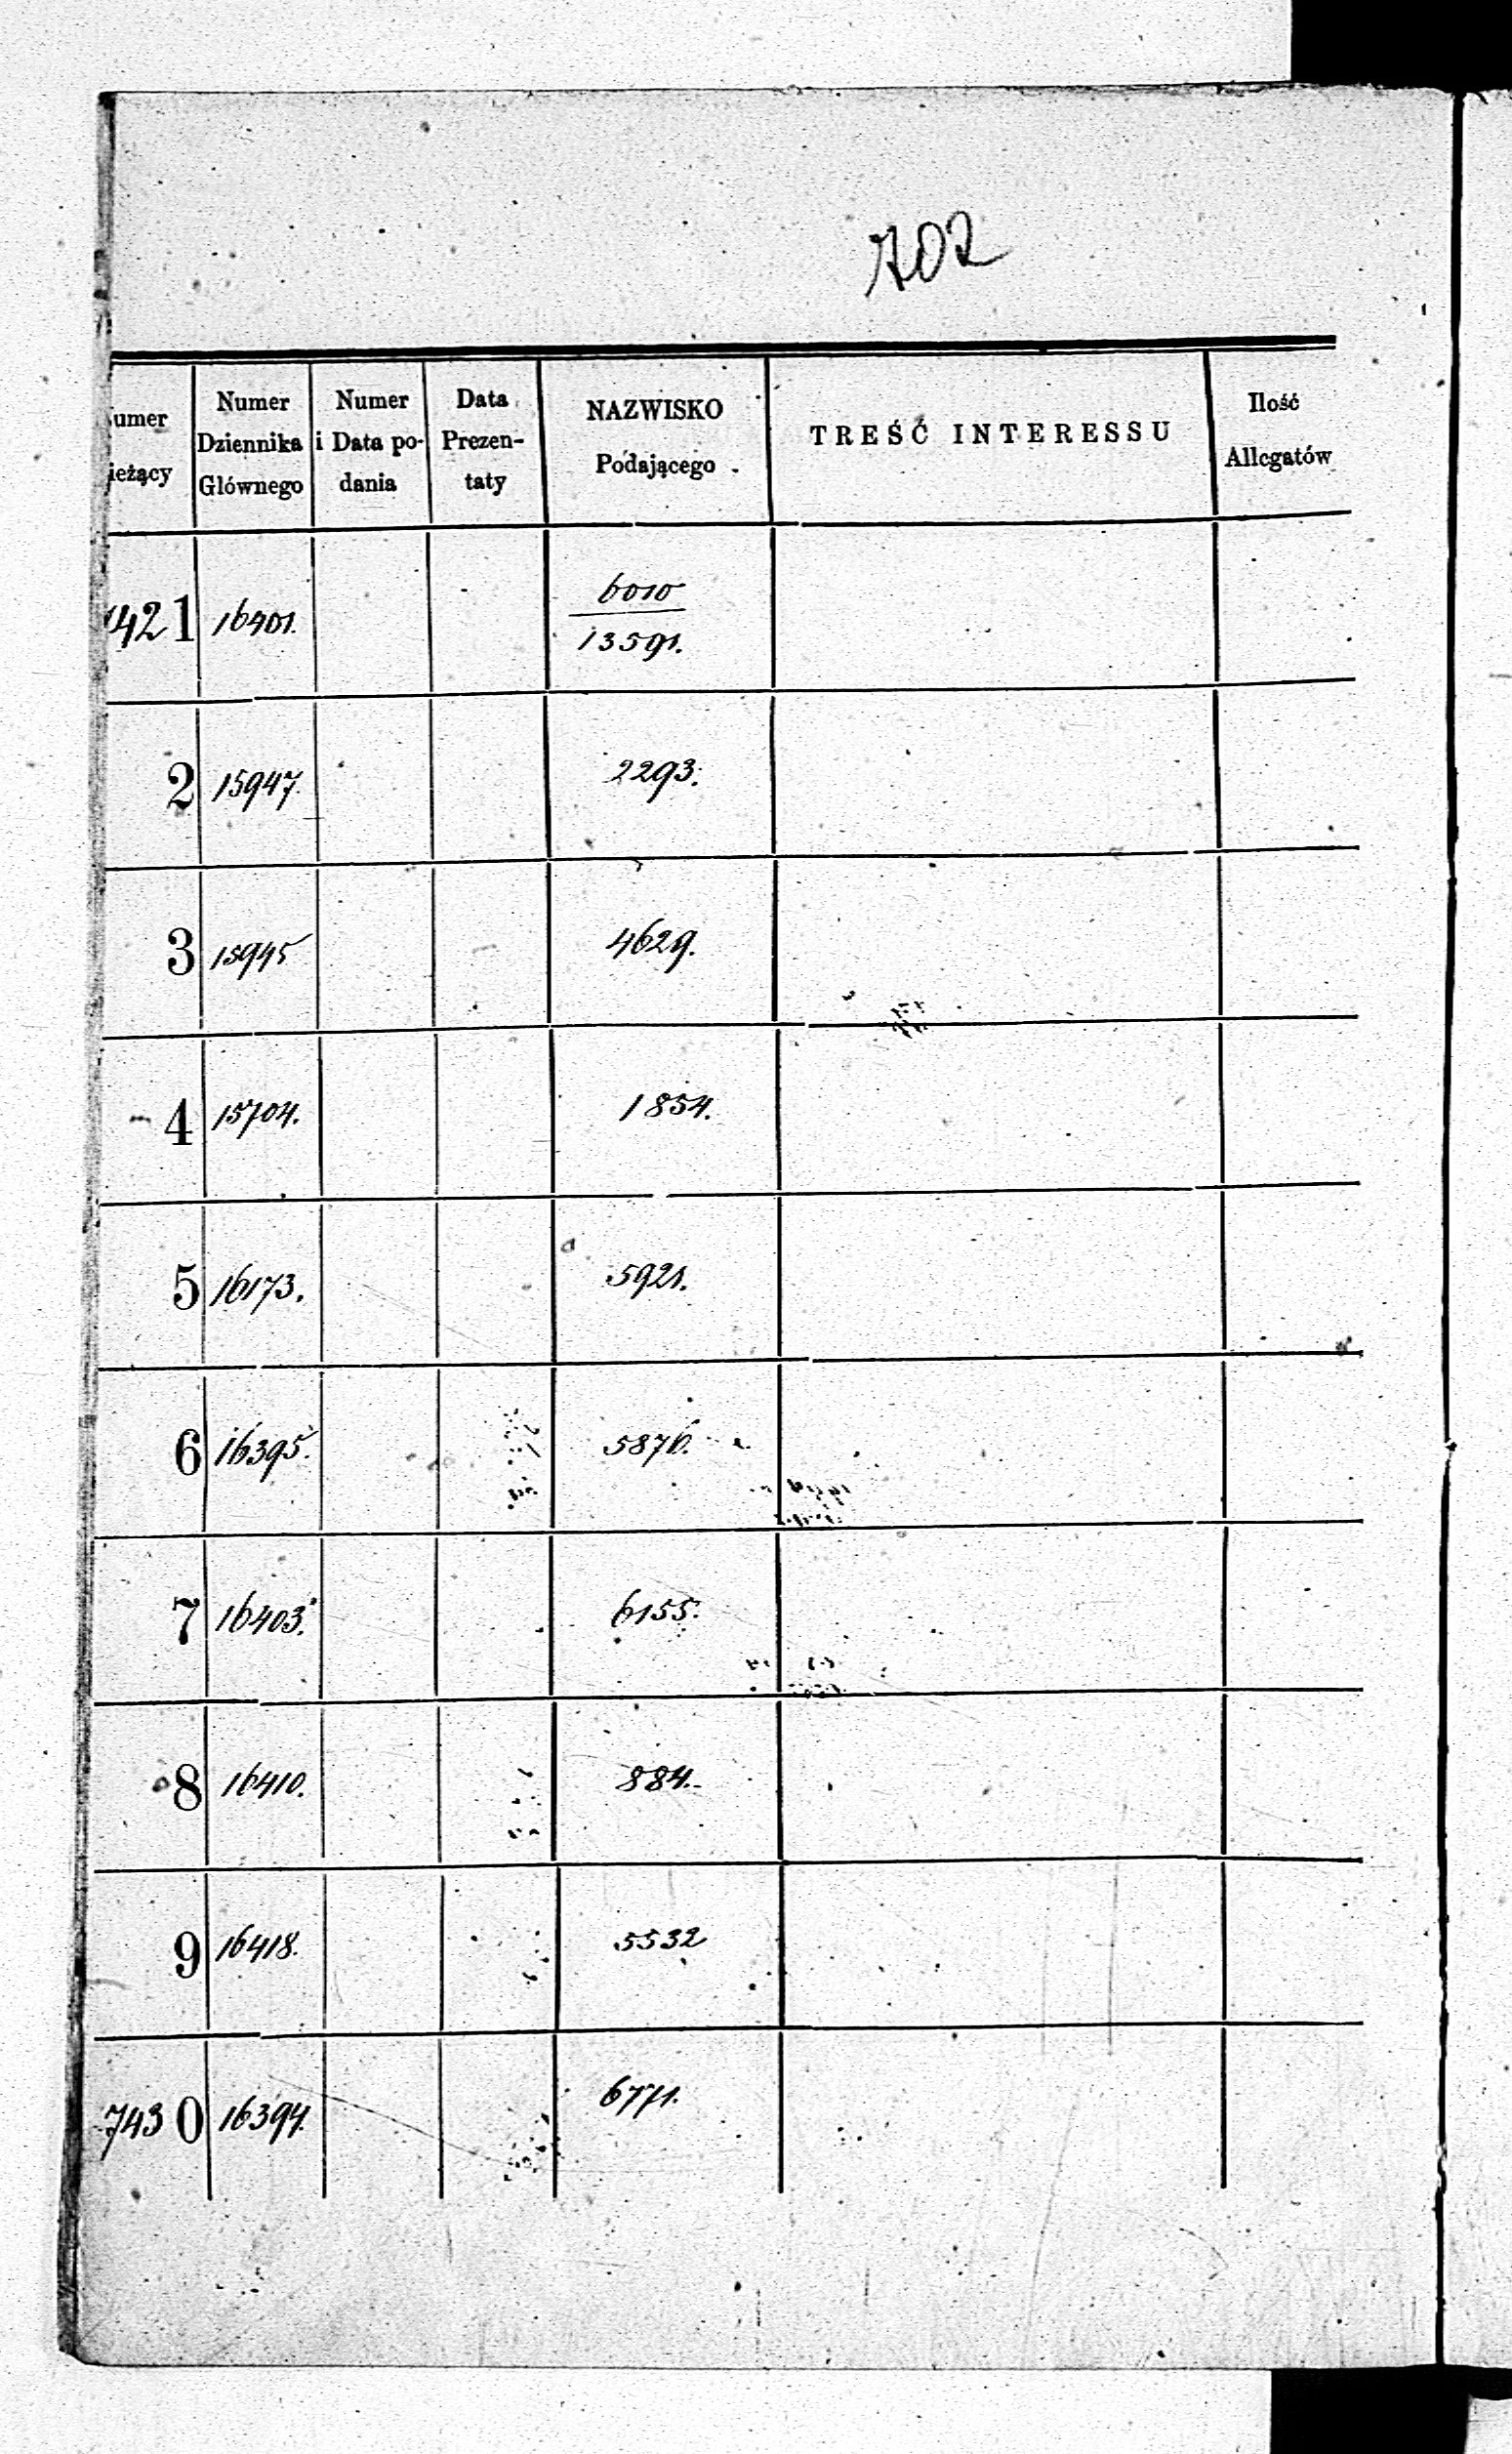 702
umer ieżący | Numer Dziennika Głównego | Numer i Data podania | Data Prezentaty | NAZWISKO Podającego | TREŚĆ INTERESSU | Ilość Allegatów
421 | 16401. | 6010 / 13591.
2 | 15947. | 2293.
3 | 15945 | 4629.
4 | 15704. | 1854.
5 | 16173. | 5921.
6 | 16395. | 5876.
7 | 16403. | 6155.
8 | 16410. | 884.
9 | 16418. | 5532
7430 | 16394. | 6771.